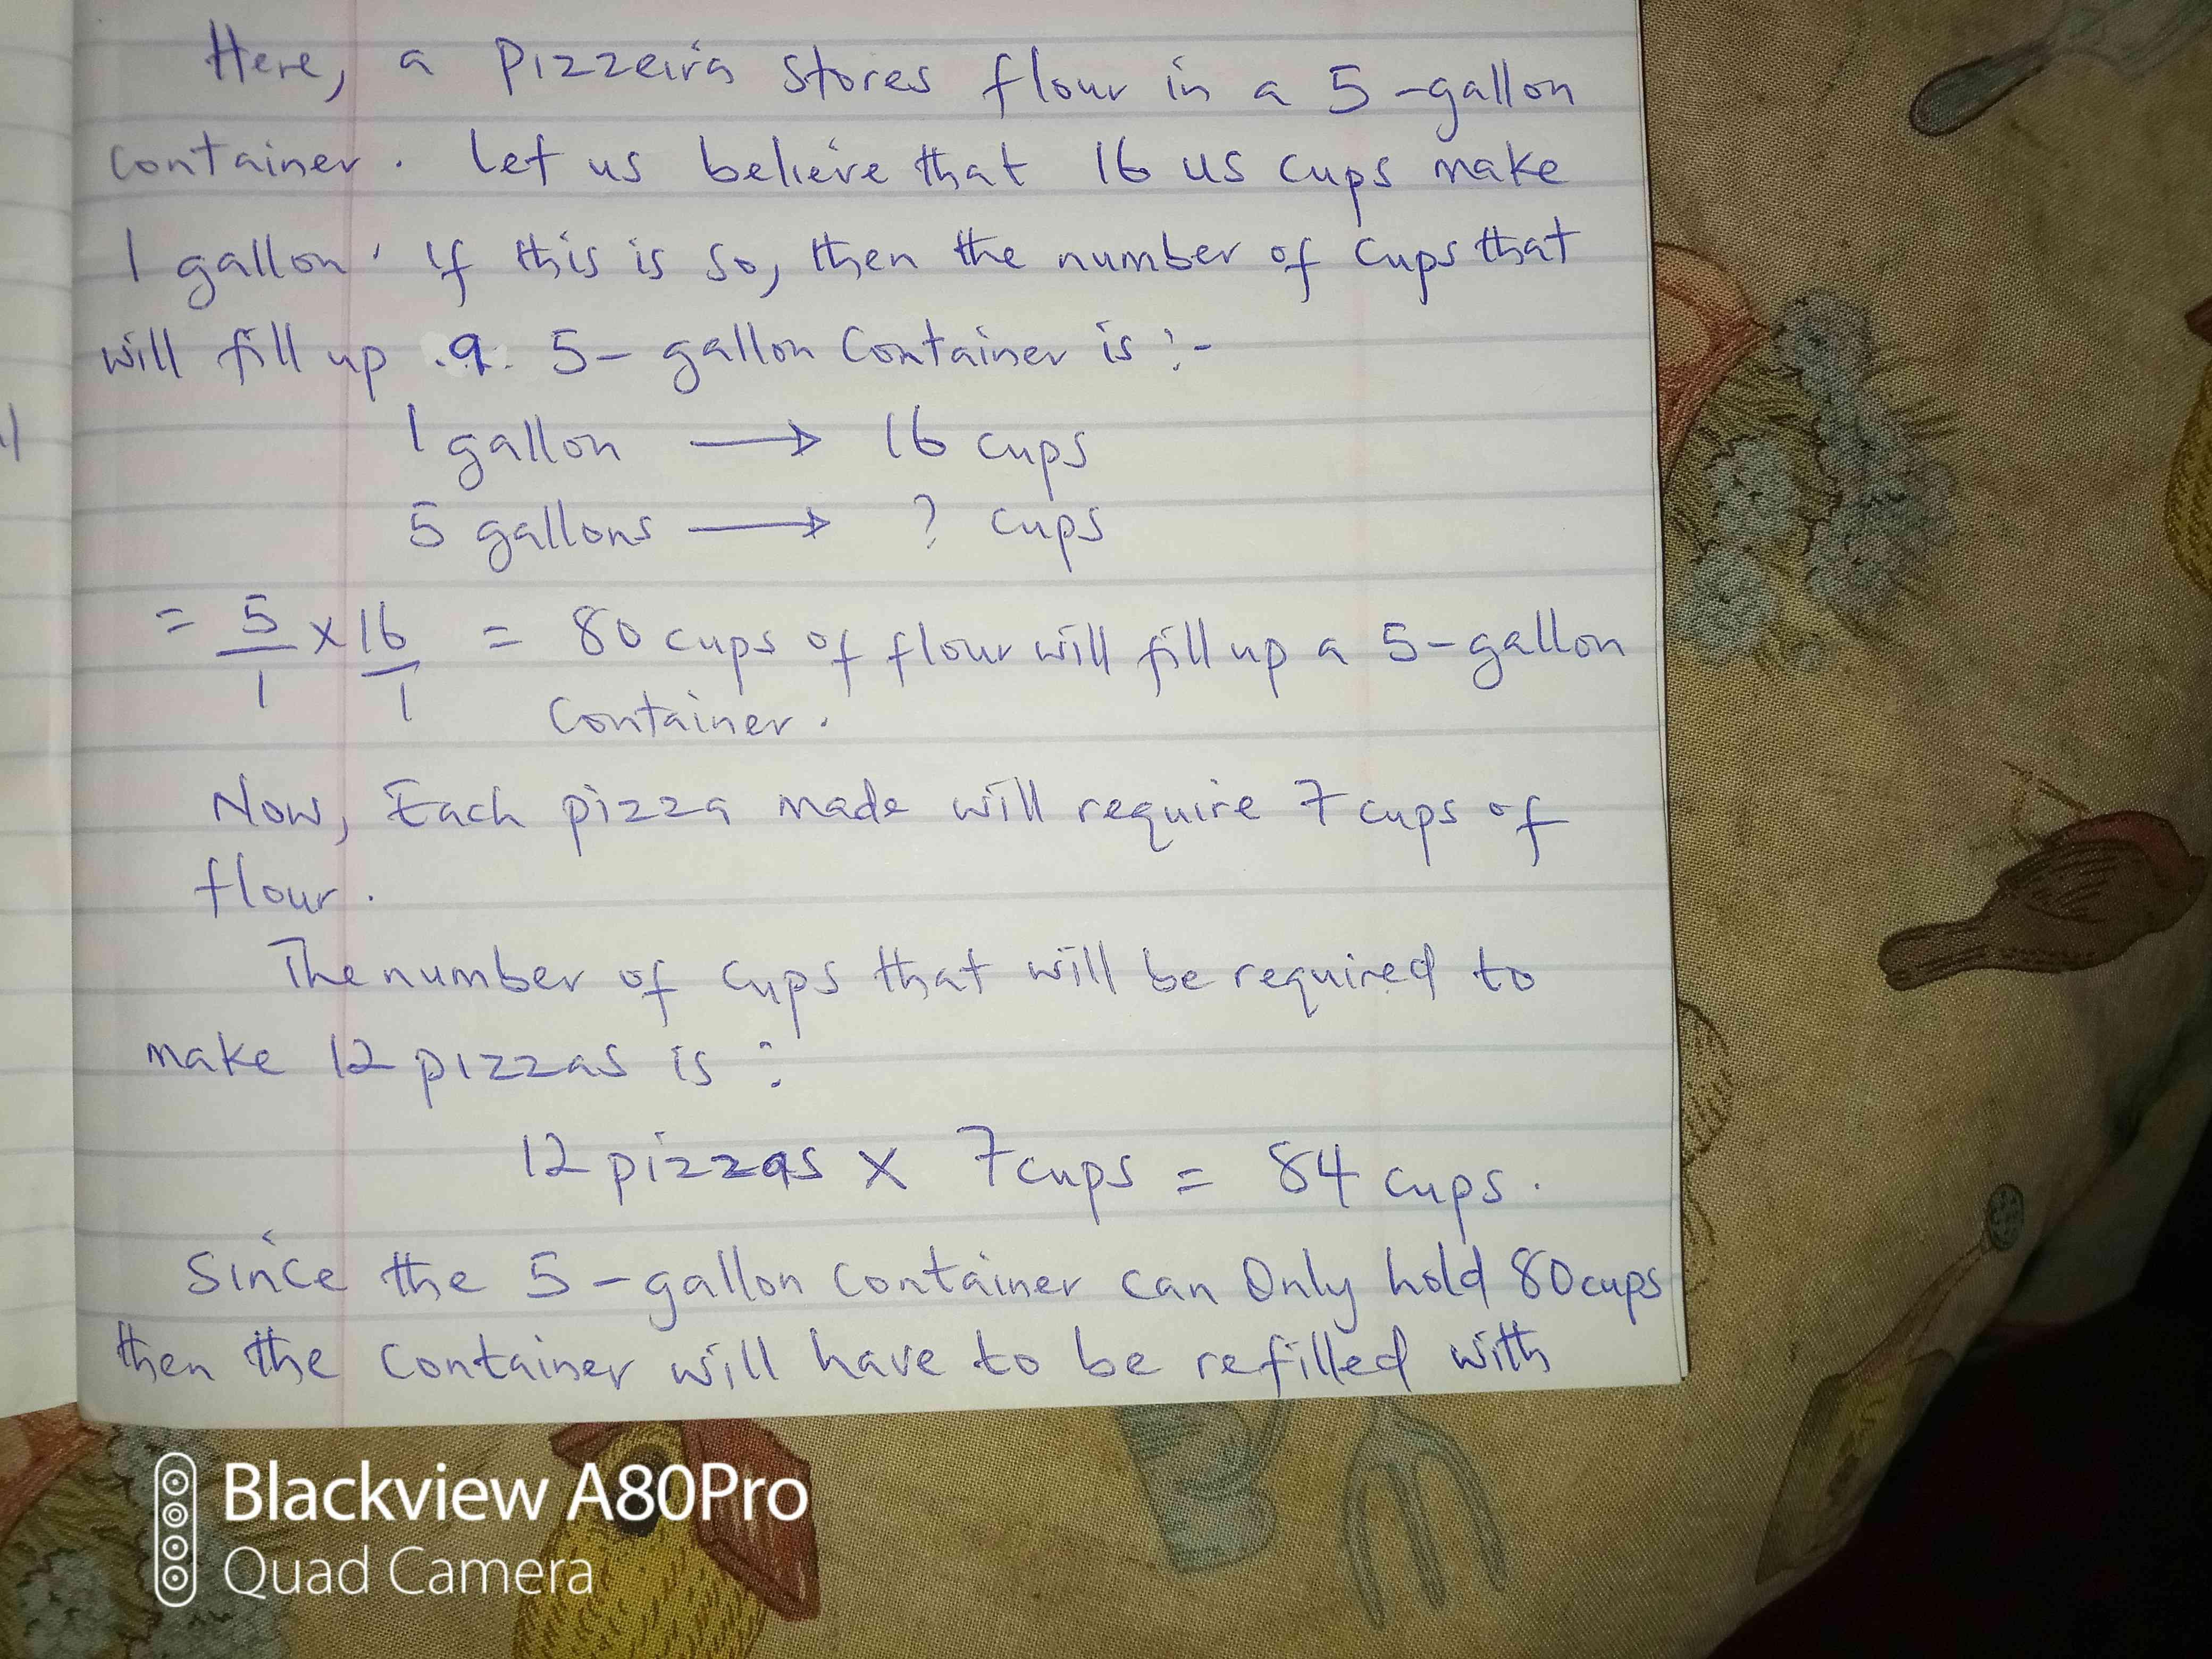 Here, a Pizzeira stores flour in a 5-gallon
container. Let us believe that 16 us cups make
1 gallon. If this is so, then the number of cups that
will fill up a 5- gallon Container is :-
1 gallon → 16 cups
5 gallons → ? cups
= 5/1 x 16/1 = 80 cups of flour will fill up a 5-gallon
Container.
Now, Each pizza made will require 7 cups of
flour.
The number of cups that will be required to
make 12 pizzas is :
12 pizzas x 7 cups = 84 cups.
Since the 5-gallon container can Only hold 80 cups
then the container will have to be refilled with
Blackview A80Pro
Quad Camera